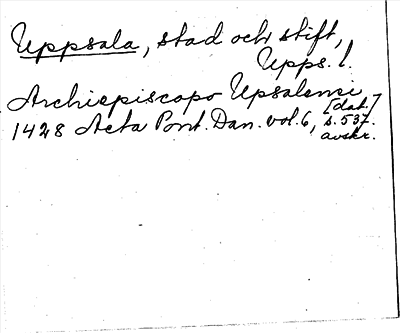 Uppsala, stad och stift,
Upps. l.
Archiepiscopo Upsalensi
[dat.]
1428 Acta Pont. Dan. vol. 6, s. 537.
avskr.